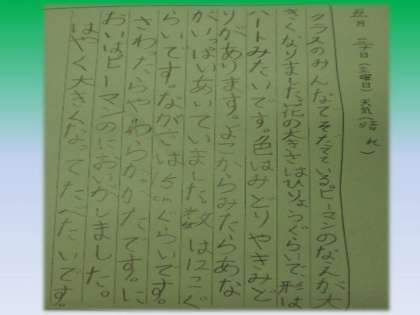 五月二十日（土曜日）天気（晴れ）
クラスのみんなでそだてている。ピーマンのなえが大
きくなりました。花の大きさはひりょうぐらいで、形は
ハートみたいです。色はみどりやきみど
りがあります。よこからみたらあな
がいっぱいあいていました。数は12こぐ
らいです。ながさは5cmぐらいです。
さわったらやわらかかったです。に
おいはピーマンのにおいがしました。
はやく大きくなってたべたいです。